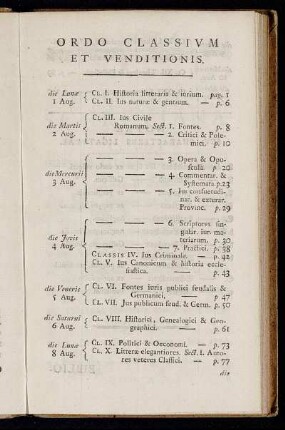 ORDO CLASSIVM
ET VENDITIONIS.
die Lunæ
1 Aug.
CL. I. Historia litteraria & iurium. pag. 1
CL. II. Ius naturæ & gentium. — p. 6
die Martis
2 Aug.
CL. III. Ius Civile
Romanum, Sect. 1. Fontes. p. 8
— — — — 2. Critici & Pole-
mici. p. 10
die Mercurii
3 Aug.
— — — — 3. Opera & Opu-
scula. p. 20
— — — — 4. Commentar. &
Systemata p. 23
— — — — 5. Ius consuetudi-
nar. & extrar.
Provinc. p. 29
die Jovis
4 Aug.
— — — — 6. Scriptores sin-
gular. iur. ma-
teriarum. p. 30
— — — — 7. Practici. p. 38
CLASSIS IV. Ius Criminale. — p. 42
CL. V. Ius Canonicum & historia eccle-
siastica. — — — p. 43
die Veneris
5 Aug.
CL. VI. Fontes iuris publici feudalis &
Germanici, — — p. 47
CL. VII. Jus publicum feud. & Germ. p. 50
die Saturni
6 Aug.
CL. VIII. Historici, Genealogici & Geo-
graphici. — — p. 61
die Lunæ
8 Aug.
CL. IX. Politici & Oeconomi. — p. 73
CL. X. Litteræ elegantiores. Sect. I. Aucto-
res veteres Classici. — — p. 77
die